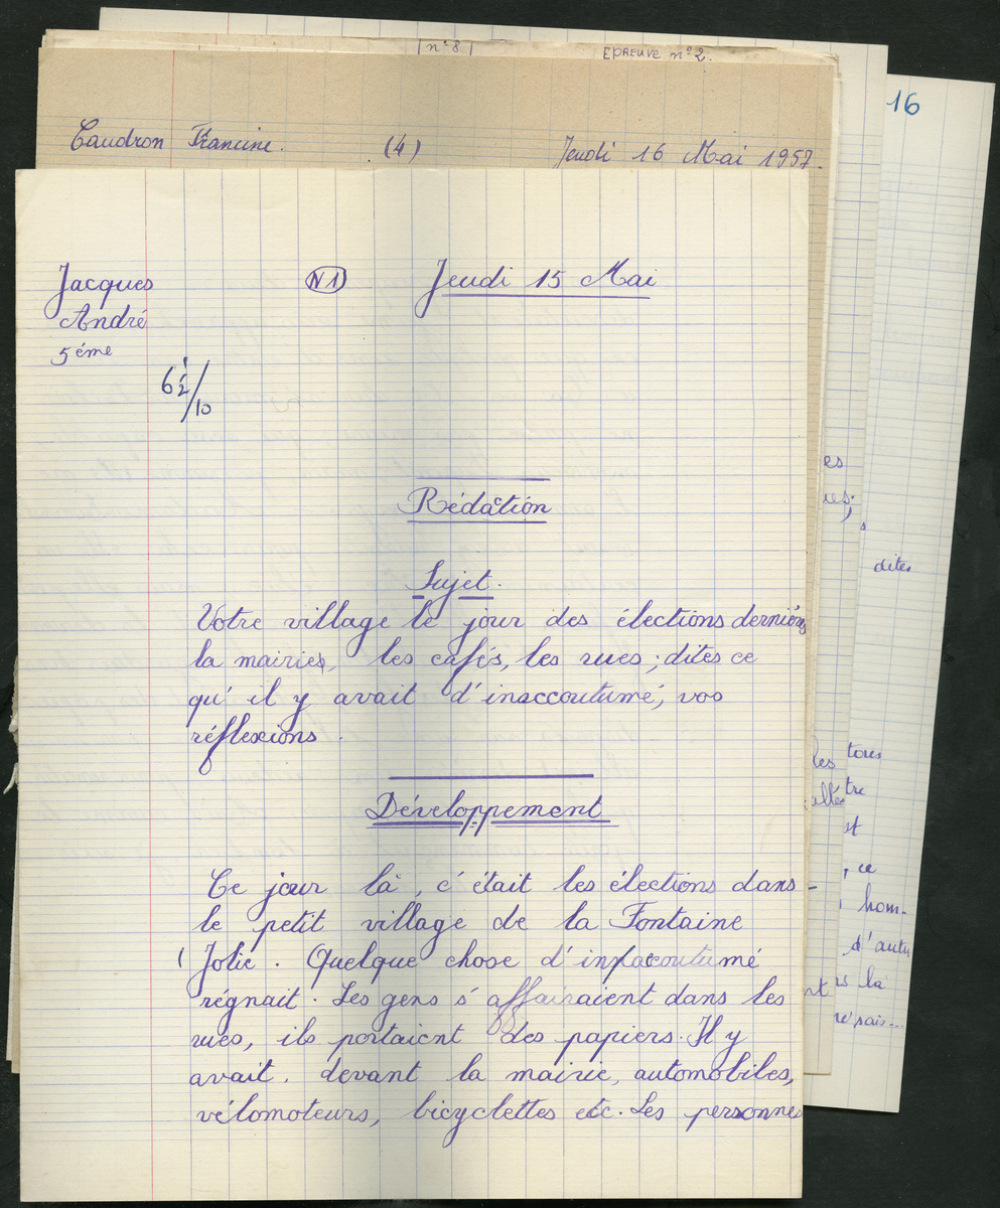 n° 8
EPREUVE n° 2.
16
Caudron Francine. (4) Jeudi 16 Mai 1957.
Jacques N1 Jeudi 15 Mai
André
5éme
6 1/2/10
Rédaction
Sujet.
Votre village le jour des élections dernières
la mairies, les cafés, les rues ; dites ce
qu'il y avait d'inaccoutumé, vos
réflexions.
Développement
Ce jour là, c'était les élections dans
le petit village de la Fontaine
Jolie. Quelque chose d'inaccoutumé
régnait. Les gens s'affairaient dans les
rues, ils portaient des papiers. Il y
avait. devant la mairie, automobiles,
vélomoteurs, bicyclettes etc. Les personnes
es
dites
les
tours
tre
st
, ce
hom-
d'autr
la
sais...